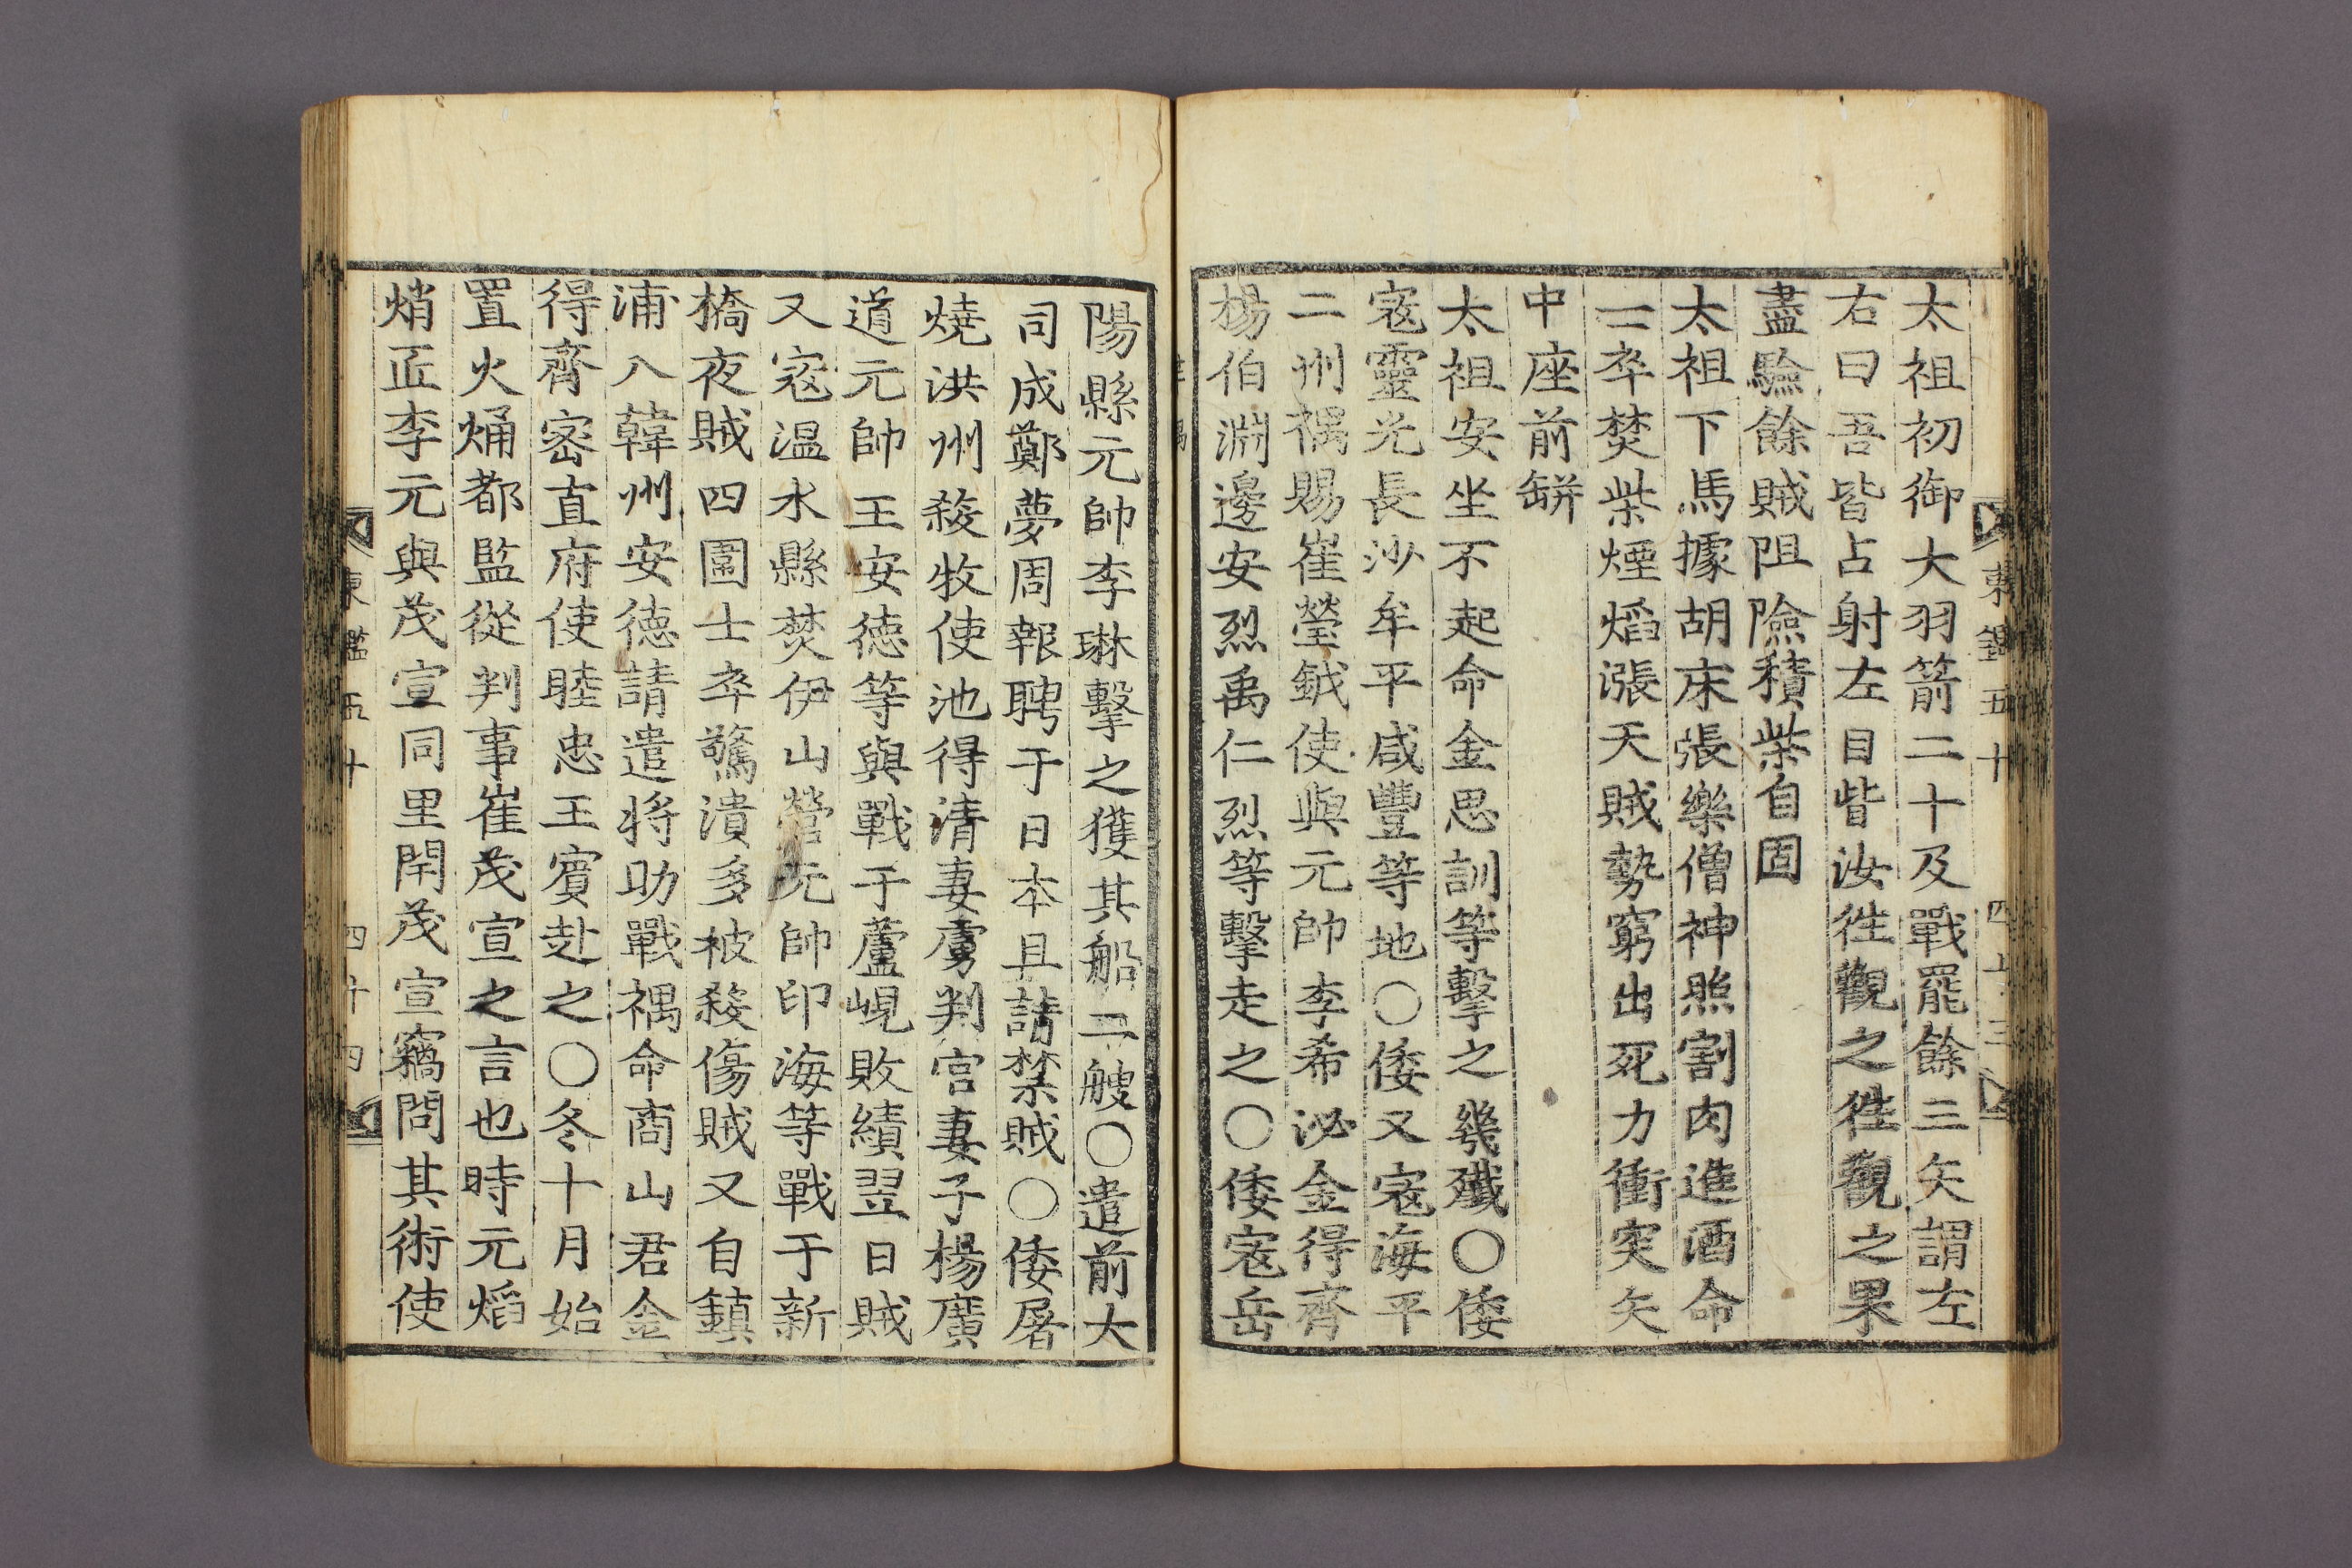 太祖初御大羽箭二十及戰罷餘三矢謂左
右曰吾皆占射左目眥汝徃觀之徃觀之果
盡驗餘賊阻險積柴自固
太祖下馬據胡床張樂僧神照割肉進酒命
士卒焚柴煙焰漲天賊勢窮出死力衝突矢
中座前缾
太祖安坐不起命金思訓等擊之幾殲○倭
寇靈光長沙牟平咸豐等地○倭又寇海平
二州禑賜崔瑩鉞使與元帥李希泌金得齊
楊伯淵邊安烈禹仁烈等擊走之○倭寇岳
東鑑五十
四十三
陽縣元帥李琳擊之獲其船二艘○遣前大
司成鄭夢周報聘于日本且請禁賊○倭屠
燒洪州殺牧使池得清妻虜判官妻子楊廣
道元帥王安德等與戰于蘆峴敗績翌日賊
又寇温水縣焚伊山營元帥印海等戰于新
橋夜賊四圍士卒驚潰多被殺傷賊又自鎮
浦入韓州安德請遣將助戰禑命商山君金
得齊密直府使睦忠王賓赴之○冬十月始
置火㷁都監從判事崔茂宣之言也時元焰
焇匠李元與茂宣同里閈茂宣竊問其術使
東鑑五十
四十四